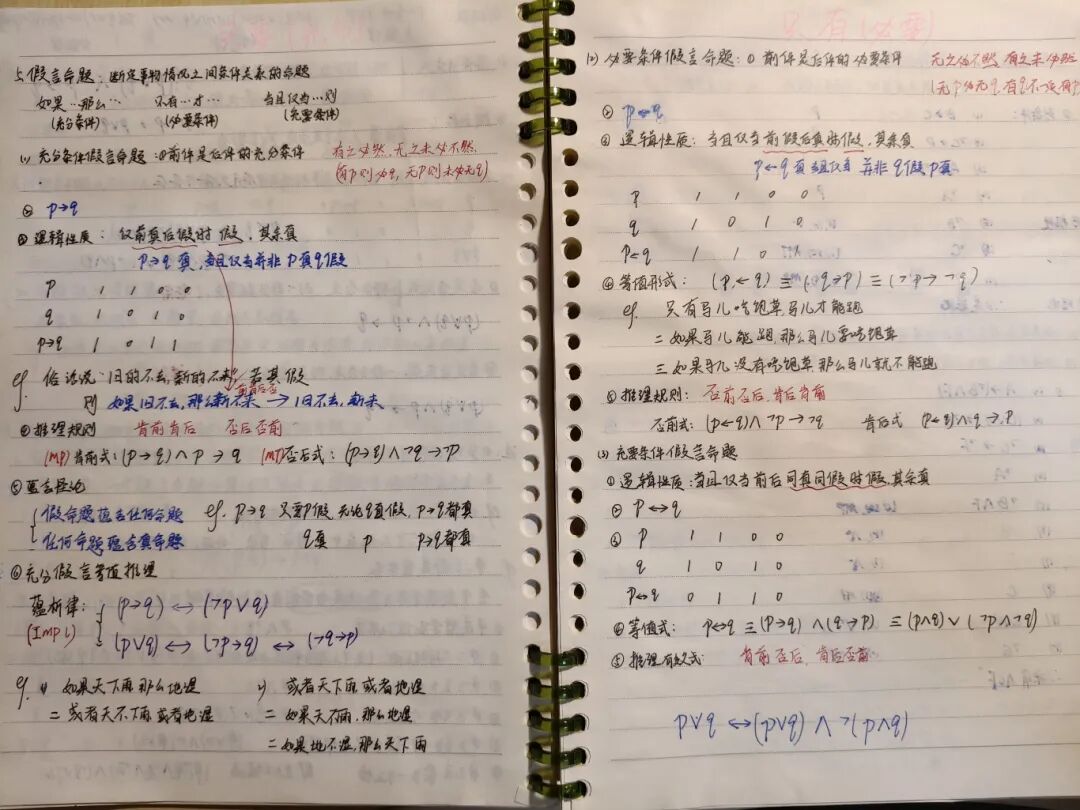 只有(必要)
5.假言命题:断定事物情况之间条件关系的命题
如果…那么… 只有…才… 当且仅当…则
(充分条件) (必要条件) (充要条件)
(1) 充分条件假言命题:①前件是后件的充分条件 有之必然,无之未必不然
(有p则必q,无p则未必无q)
② p→q
③ 逻辑性质: 仅前真后假时 假,其余真
p→q 真,当且仅当并非 p真q假
p 1 1 0 0
q 1 0 1 0
p→q 1 0 1 1
eg. 俗话说"旧的不去,新的不来"若其假
前肯后否
则 如果旧不去,那么新不来 → 旧不去,新来
④推理规则 肯前肯后 否后否前
(MP)肯前式:(p→q)∧p→q (MT)否后式:(p→q)∧¬q→¬p
⑤蕴含怪论
假命题蕴含任何命题 eg. p→q 只要p假,无论q真假,p→q都真
任何命题蕴含真命题 q真 p p→q都真
⑥充分假言等值推理
蕴析律: (p→q)↔(¬p∨q)
(Impl)
(p∨q)↔(¬p→q)↔(¬q→p)
eg. 1) 如果天下雨,那么地湿 2) 或者天下雨,或者地湿
= 或者天不下雨,或者地湿 = 如果天不雨,那么地湿
= 如果地不湿,那么天下雨
(2) 必要条件假言命题:① 前件是后件的必要条件 无之必不然,有之未必然
(无p必无q,有q不一定有p
② p←q
③ 逻辑性质:当且仅当前假后真时假,其余真
p←q真 当且仅当 并非q假p真
p 1 1 0 0
q 1 0 1 0
p←q 1 1 0 1
④等值形式: (p←q)≡(q→p)≡(¬p→¬q)
eg. 只有马儿吃饱草,马儿才能跑
= 如果马儿能跑,那么马儿要吃饱草
= 如果马儿没有吃饱草那么马儿就不能跑
⑤推理规则: 否前否后,肯后肯前
否前式:(p←q)∧¬p→¬q 肯后式 (p←q)∧q→p
(3) 充要条件假言命题
①逻辑性质:当且仅当前后同真同假时假,其余真
② p↔q
③ p 1 1 0 0
q 1 0 1 0
p↔q 0 1 1 0
④等值式: p↔q≡(p→q)∧(q→p)≡(p∧q)∨(¬p∧¬q)
⑤推理有效式: 肯前否后,肯后否前
p∨q↔(p∨q)∧¬(p∧q)